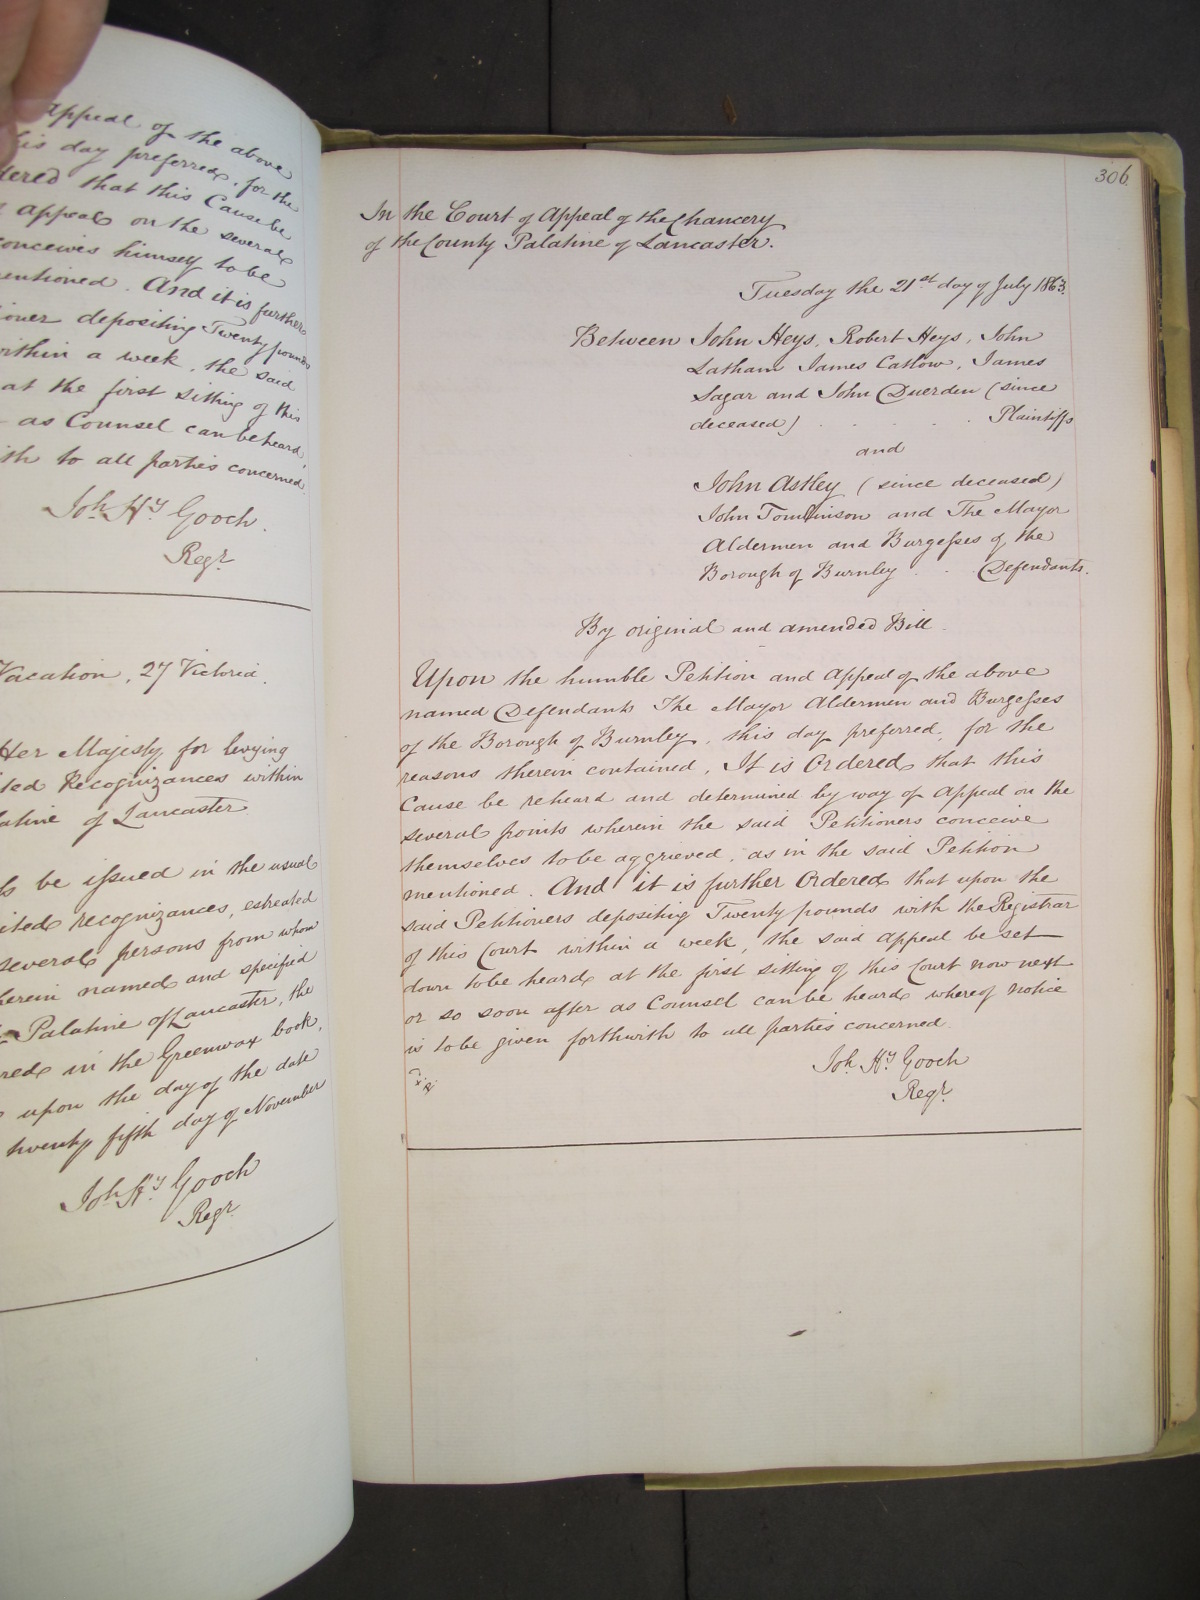 appeal of the above
this day preferred, for the
dered that this Cause be
appeal on the several
conceives himself to be
mentioned. And it is further
ioner depositing Twenty pounds
within a week, the said
at the first sitting of this
as Counsel can be heard
ith to all parties concerned.
Joh. Hy. Gooch.
Regr.
Vacation, 27 Victoria.
Her Majesty for levying
ted Recognizances within
latine of Lancaster
be issued in the usual
ited recognizances, estreated
several persons from whom
herein named and specified
Palatine of Lancaster, the
red in the Greenwax book,
upon the day of the date
twenty fifth day of November
Joh. Hy. Gooch
Regr.
306.
In the Court of Appeal of the Chancery
of the County Palatine of Lancaster.
Tuesday the 21st day of July 1863.
Between John Heys, Robert Heys, John
Latham James Catlow, James
Sagar and John Duerden (since
deceased) . . . . . Plaintiffs
and
John Astley (since deceased)
John Tomlinson and The Mayor
Aldermen and Burgesses of the
Borough of Burnley . . Defendants.
By original and amended Bill.
Upon the humble Petition and Appeal of the above
named Defendants The Mayor Aldermen and Burgesses
of the Borough of Burnley, this day preferred, for the
reasons therein contained, It is Ordered that this
Cause be reheard and determined by way of Appeal on the
several points wherein the said Petitioners conceive
themselves to be aggrieved, as in the said Petition
mentioned. And it is further Ordered that upon the
said Petitioners depositing Twenty pounds with the Registrar
of this Court within a week, the said appeal be set
down to be heard at the first sitting of this Court now next
or so soon after as Counsel can be heard whereof notice
is to be given forthwith to all parties concerned.
Joh. Hy. Gooch
Regr.